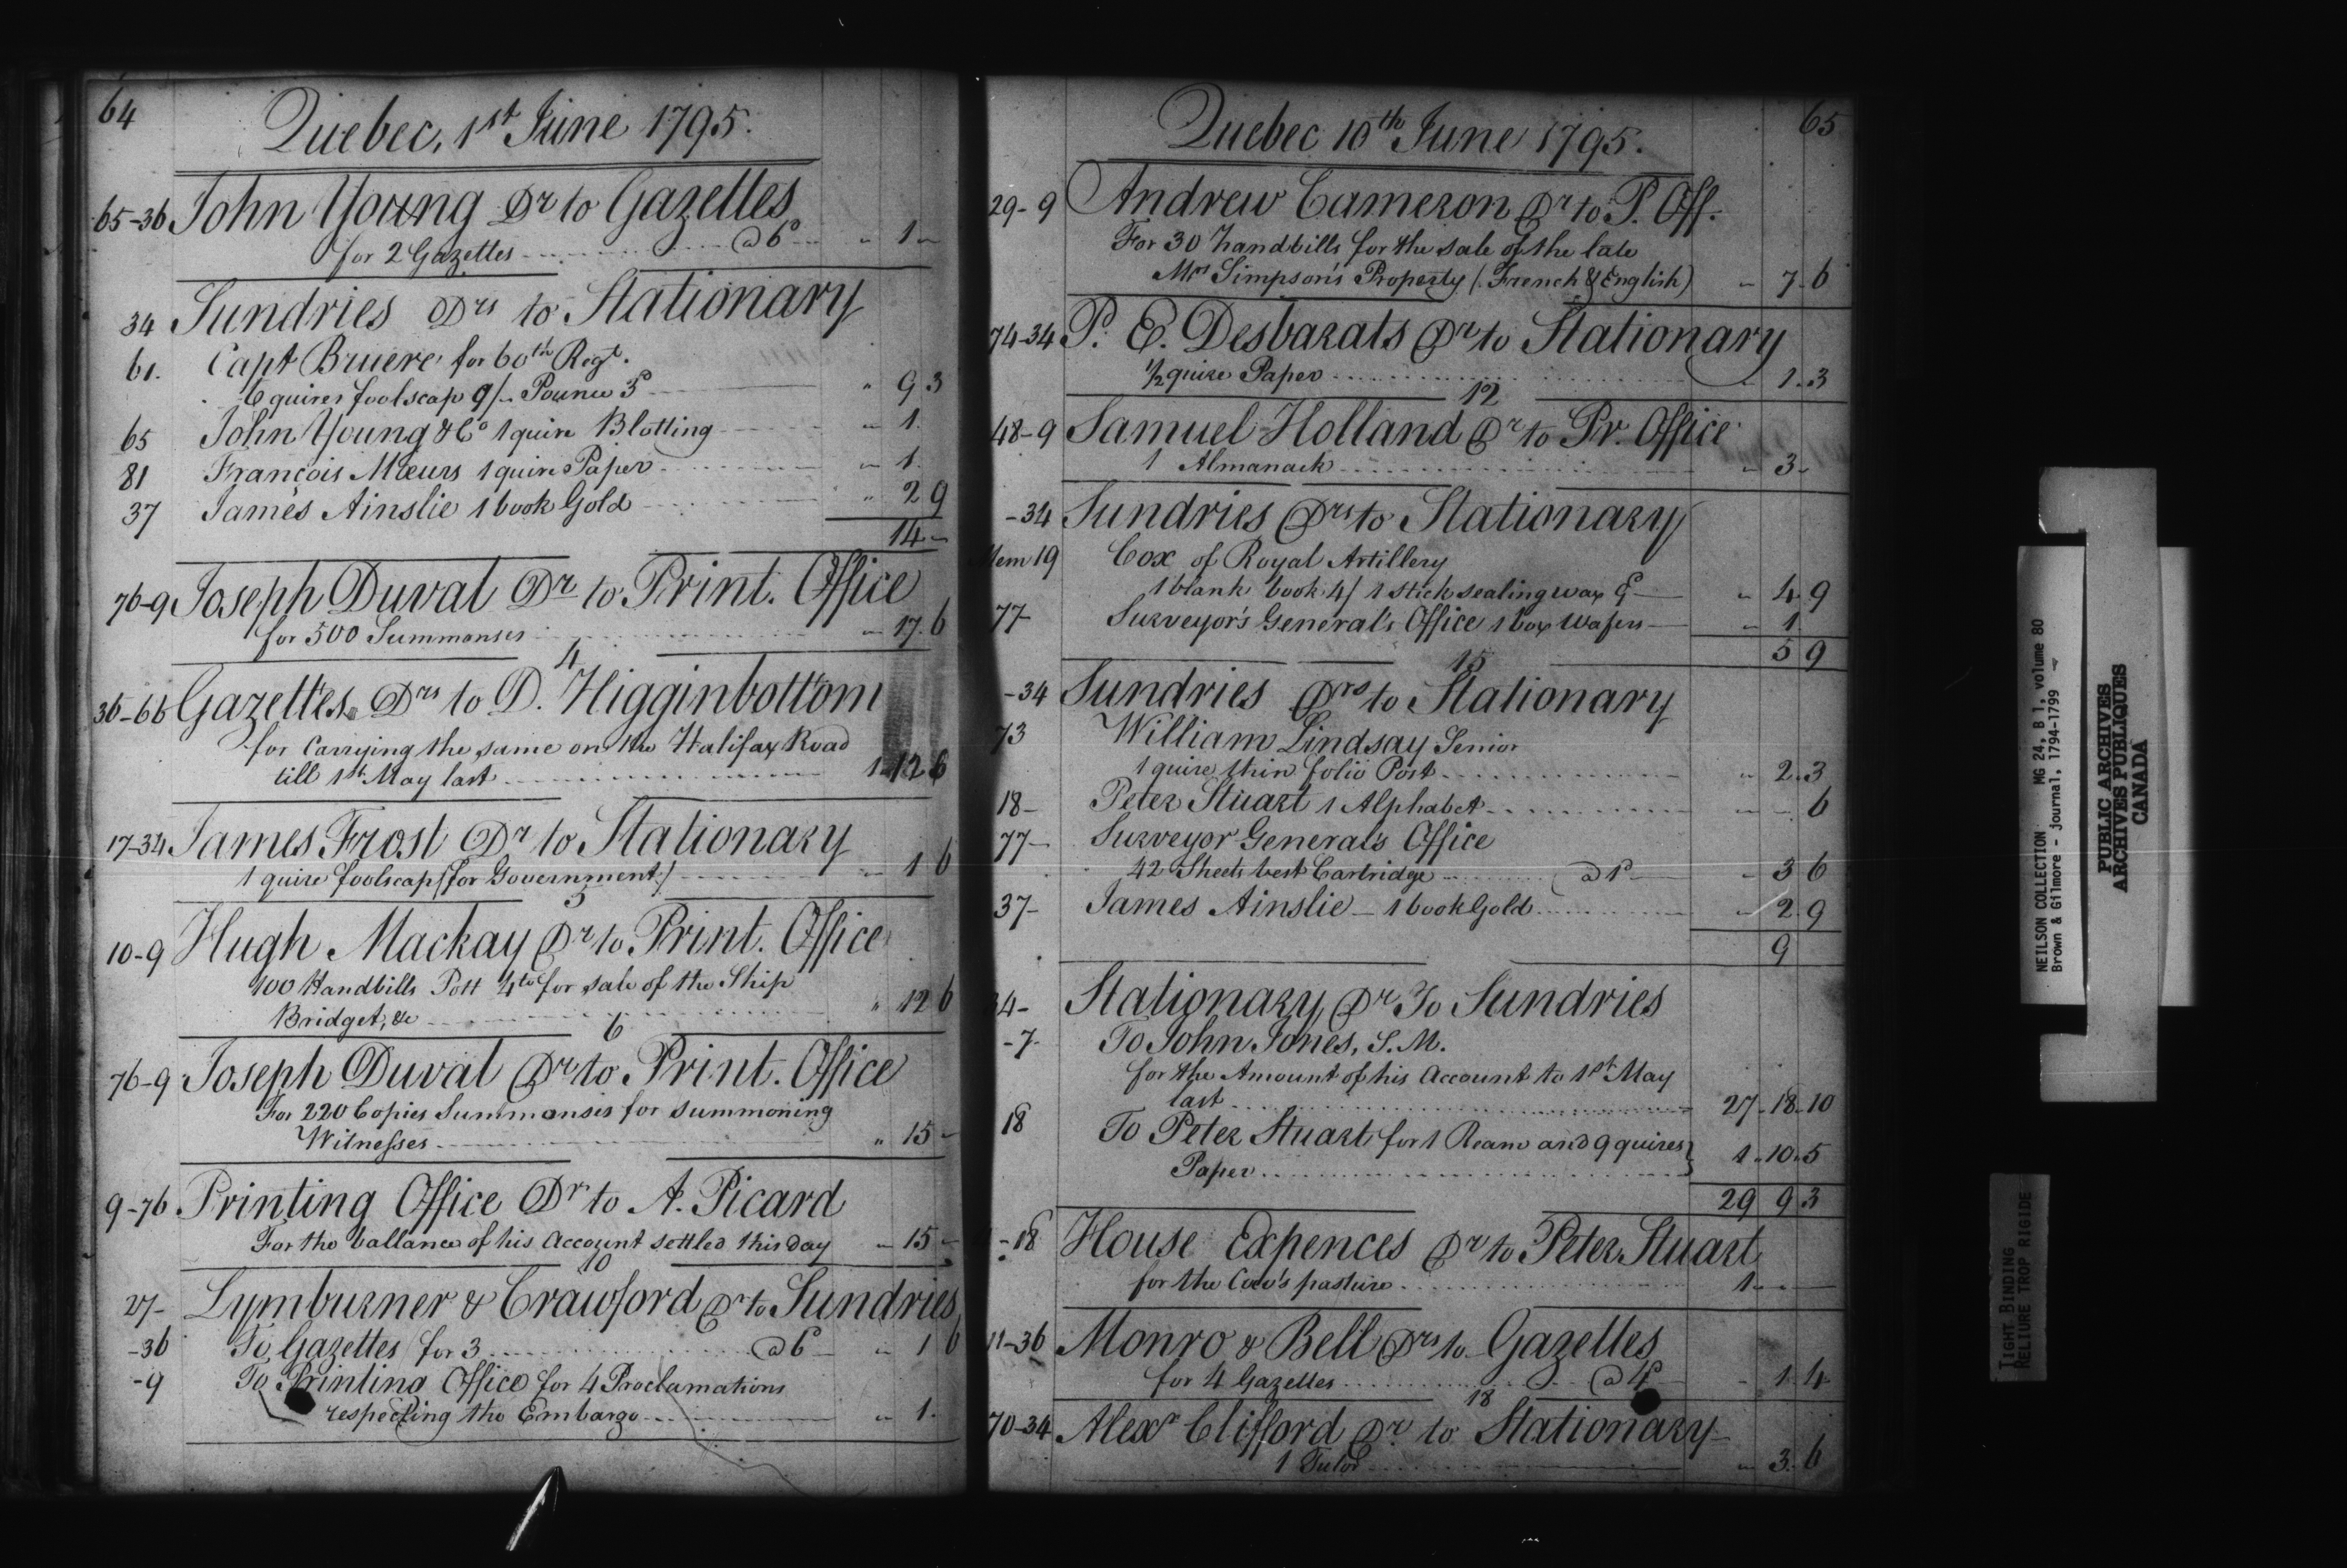 64
Quebec, 1st June 1795.
65-36 John Young Dr to Gazettes
for 2 Gazettes @ 6d " 1 "
34 Sundries Drs to Stationary
61. Capt Bruere for 60th Regt.
6 quires foolscap 9/- Pounce 3d " 9 3
65 John Young & Co 1 quire Blotting " 1
81 François Mœurs 1 quire Paper " 1
37 James Ainslie 1 book Gold " 2 9
14 -
76-9 Joseph Duval Dr to Print. Office
for 500 Summonses " 17. 6
4
36-66 Gazettes Drs to D. Higginbottom
for Carrying the same on the Halifax Road
till 1st May last 1 12 6
17-34 James Frost Dr to Stationary
1 quire foolscap (for Government) " 1 6
5
10-9 Hugh Mackay Dr to Print. Office
100 Handbills Pott 4to for sale of the Ship
Bridget, &c " 12 6
6
76-9 Joseph Duval Dr to Print. Office
For 220 Copies Summonses for summoning
Witnesses " 15 -
9-76 Printing Office Dr to A. Picard
For the ballance of his Account settled this day " 15 -
10
27- Lymburner & Crawford Dr to Sundries
-36 To Gazettes for 3 @ 6d " 1 6
-9 To Printing Office for 4 Proclamations
respecting the Embargo " 1.
65
Quebec 10th June 1795.
29-9 Andrew Cameron Dr to P. Off.
For 30 handbills for the sale of the late
Mrs Simpson's Property (French & English) " 7. 6
74-34 P. E. Desbarats Dr to Stationary
1/2 quire Paper " 1. 3
12
48-9 Samuel Holland Dr to Pr. Office
1 Almanack " 3 -
-34 Sundries Drs to Stationary
Mem 19 Cox of Royal Artillery
1 blank book 4/ 1 stick sealing wax 9d " 4 9
77 Surveyor's General's Office 1 box Wafers " 1
5 9
15
-34 Sundries Drs to Stationary
73 William Lindsay Senior
1 quire thin folio Post " 2. 3
18- Peter Stuart 1 Alphabet " - 6
77- Surveyor General's Office
42 Sheets best Cartridge @ 1d " 3 6
37- James Ainslie - 1 book Gold " 2. 9
9
34- Stationary Dr To Sundries
-7- To John Jones, S. M.
for the Amount of his Account to 1st May
last 27-18-10
18 To Peter Stuart for 1 Ream and 9 quires
Paper 1. 10. 5
29 9 3
-18 House Expences Dr to Peter Stuart
for the Cow's pasture 1 - -
11-36 Monro & Bell Drs to Gazettes
for 4 Gazettes @ 4d " 1. 4
18
70-34 Alexr Clifford Dr to Stationary
1 Tutor " 3. 6
NEILSON COLLECTION MG 24, B 1, volume 80
Brown & Gilmore - journal, 1794-1799
PUBLIC ARCHIVES
ARCHIVES PUBLIQUES
CANADA
TIGHT BINDING
RELIURE TROP RIGIDE